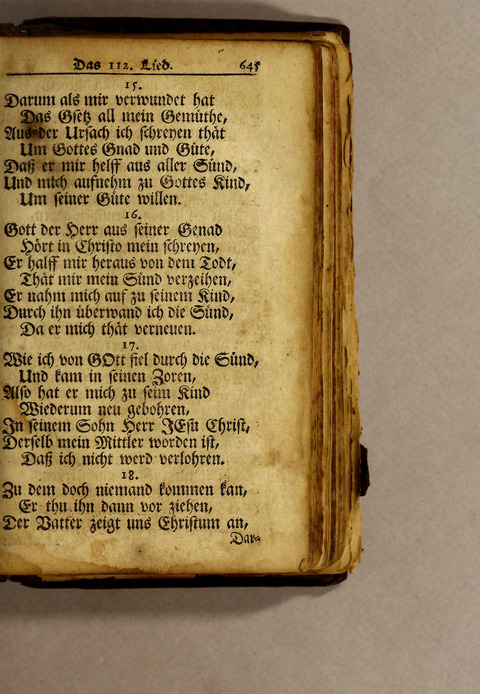 Das 112. Lied. 645
15.
Darum als mir verwundet hat
Das Gsetz all mein Gemüthe,
Aus der Ursach ich schreyen thät
Um Gottes Gnad und Güte,
Daß er mir helff aus aller Sünd,
Und mich aufnehm zu Gottes Kind,
Um seiner Güte willen.
16.
Gott der Herr aus seiner Genad
Hört in Christo mein schreyen,
Er halff mir heraus von dem Todt,
Thät mir mein Sünd verzeihen,
Er nahm mich auf zu seinem Kind,
Durch ihn überwand ich die Sünd,
Da er mich thät verneuen.
17.
Wie ich von GOtt fiel durch die Sünd,
Und kam in seinen Zoren,
Also hat er mich zu seim Kind
Wiederum neu gebohren,
In seinem Sohn Herr JEsu Christ,
Derselb mein Mittler worden ist,
Daß ich nicht werd verlohren.
18.
Zu dem doch niemand kommen kan,
Er thu ihn dann vor ziehen,
Der Vatter zeigt uns Christum an,
Dar-